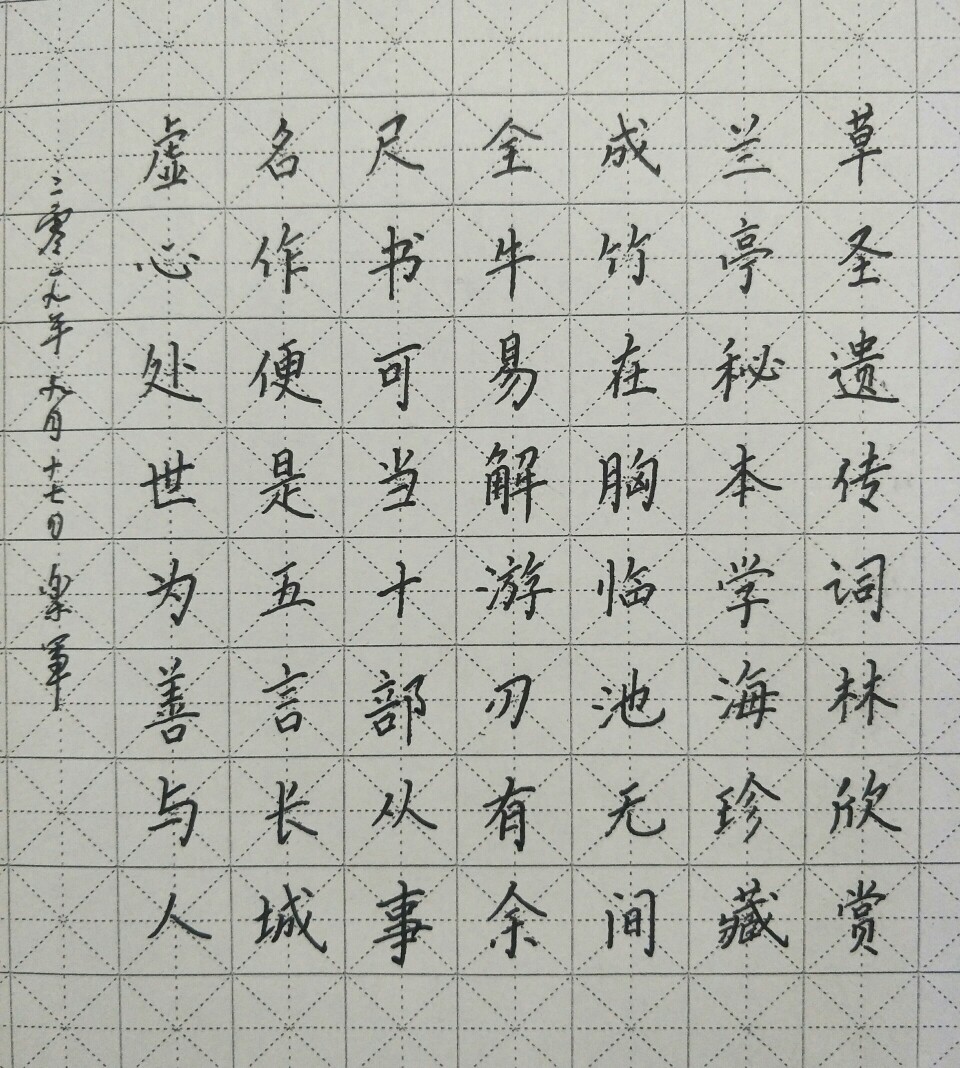 草圣遗传词林欣赏
兰亭秘本学海珍藏
成竹在胸临池无间
全牛易解游刃有余
尺书可当十部从事
名作便是五言长城
虚心处世为善与人
二零一九年九月十七日